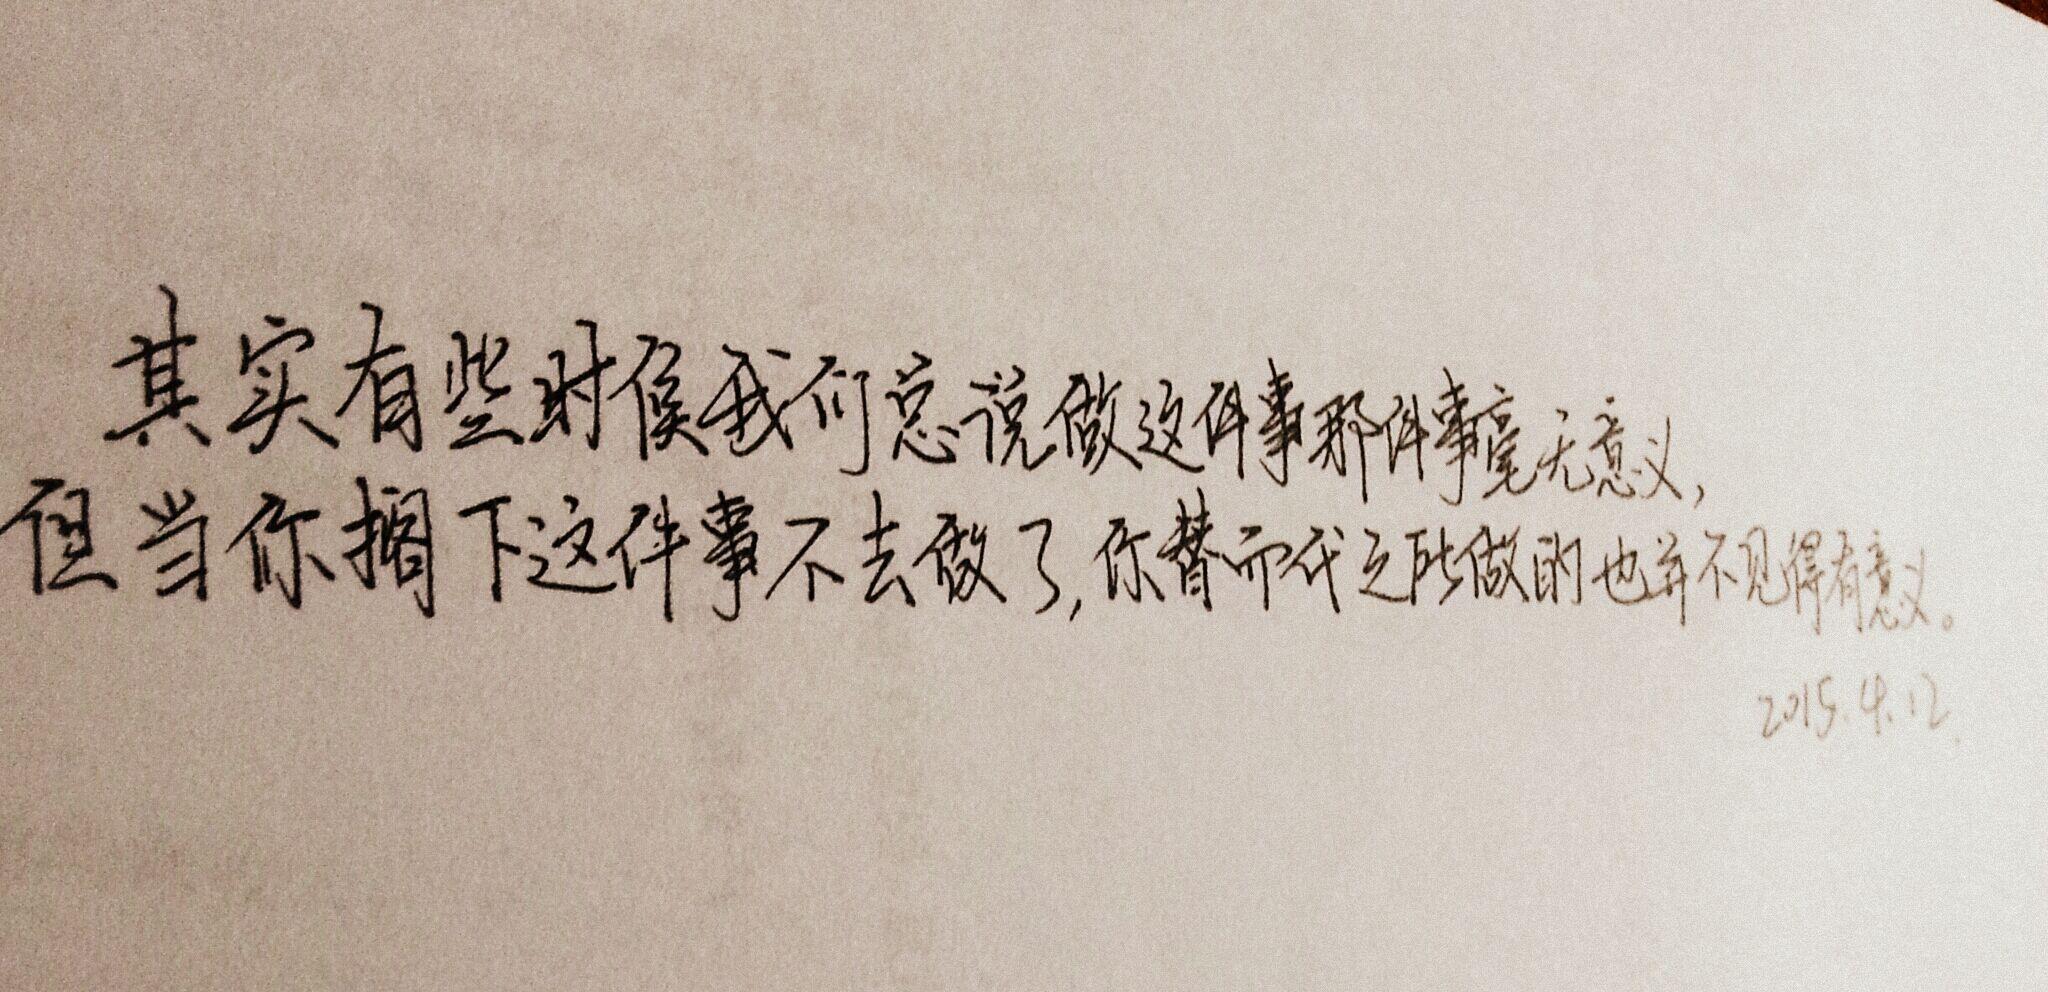 其实有些时候我们总说做这件事那件事毫无意义,
但当你搁下这件事不去做了,你替而代之所做的也并不见得有意义。
2015.4.12